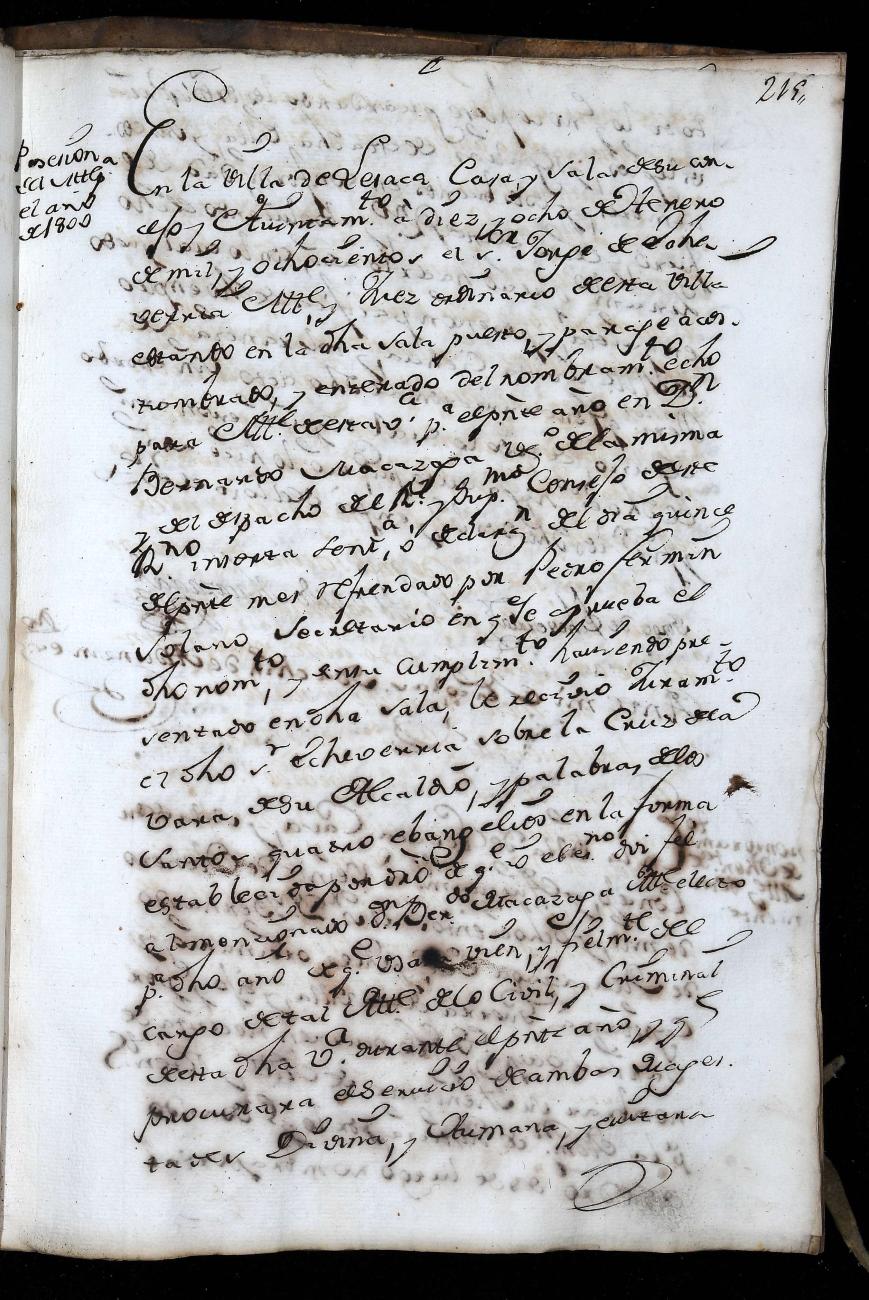 215,,
Posesion a
del Alle.
el año
de 1800
En la Villa de Lesaca Casa, y Sala de su con-
cejo, y Aiuntam.to à diez, y ocho de Henero
de mil, y ochocientos el s.or Jorge de Eche
verria Alle, y Juez ordinario de esta Villa
estando en la dha sala puesto, y parage acos-
tumbrado, y enterado del nombram.to echo
para Alle. de esta v.a p.a el pñte año en D.n
Bernardo Macazaga vz.o de la misma
y del despacho del R.l y Sup.mo Consejo de este
R.no inserta sent.a, ò declarn. del dia quince
del pñte mes refrendado por Pedro Fermin
Solano Secretario en q.e se aprueba el
dho nom.to, y en su cumplim.to haviendo pre-
sentado en dha sala, le reciviò Juram.to
el dho s.r Echeverria sobre la Cruz de la
vara, de su Alcaldiò, y palabras de los
Santos quatro ebangelios en la forma
establecida por drò de q.e
al mencionado D.n Ber.do Macazaga Alle. electo
p.a dho año de q.e usara vien, y fielm.te del
cargo de tal Alle. de lo Civil, y Criminal
de esta dha v.a durante el pñte año, y q.e
procurara el Servicio de ambas Magest.
tades Divina, y Humana, y evitara